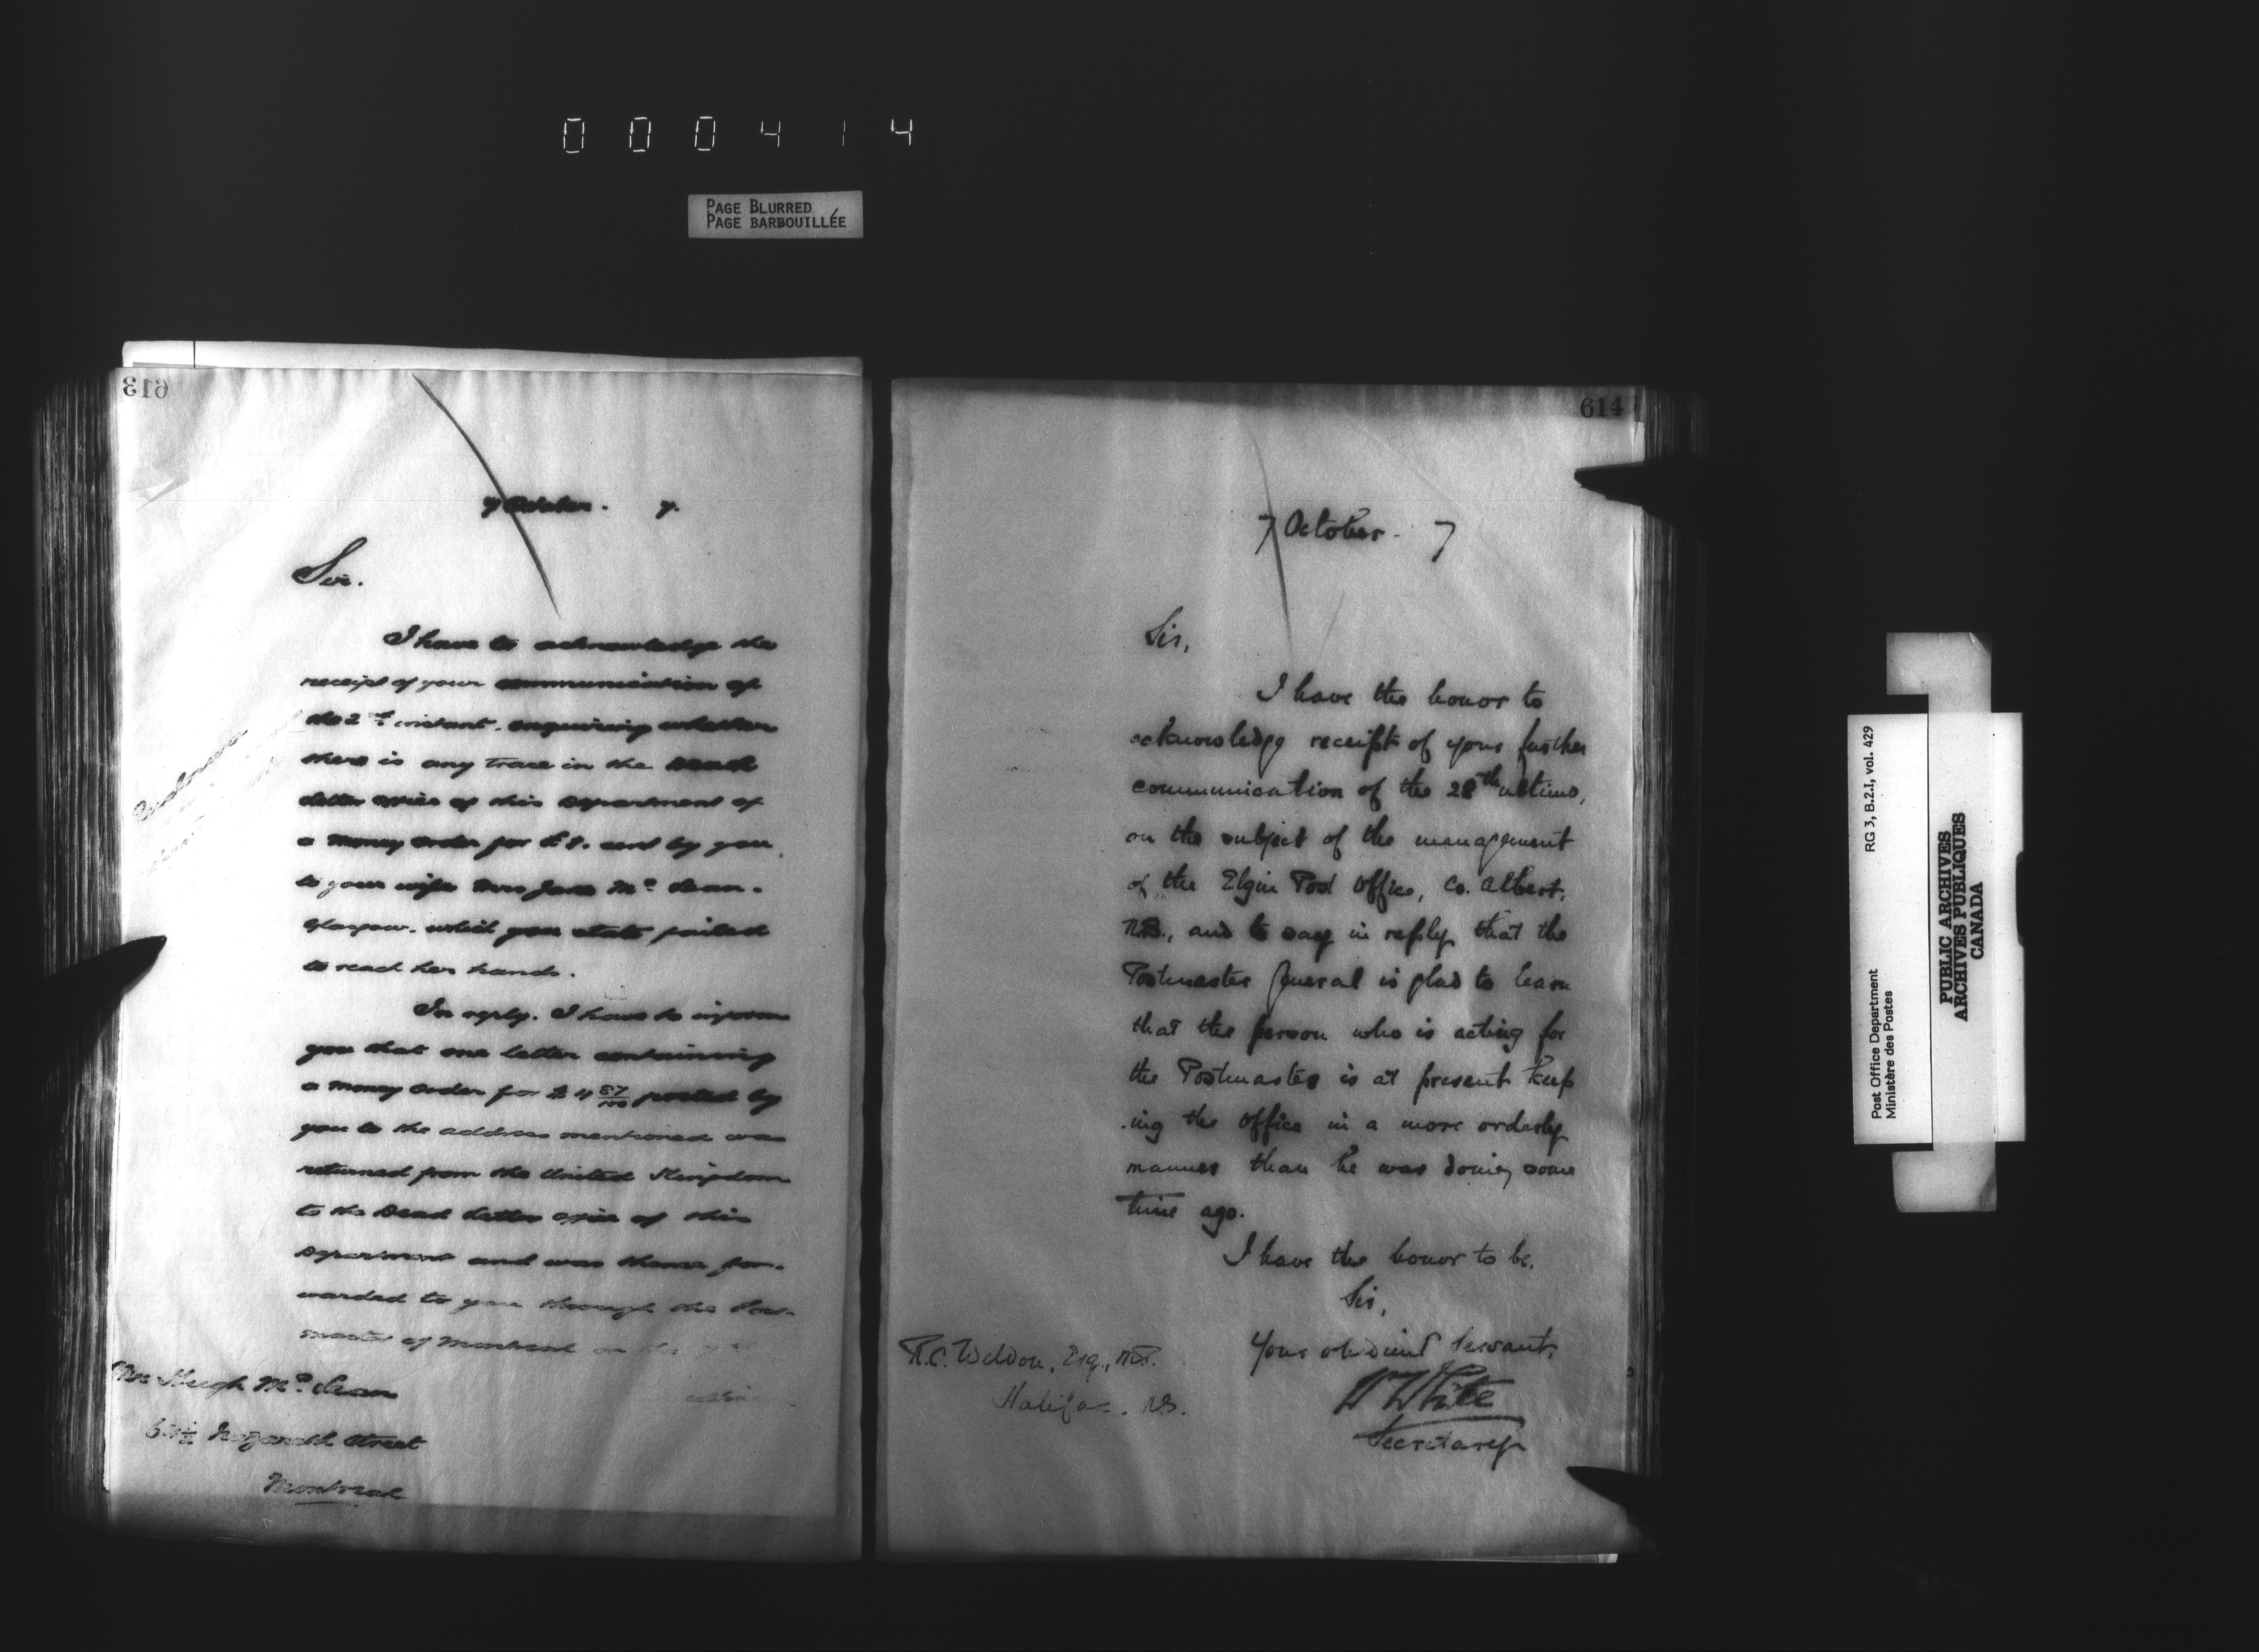 000414
PAGE BLURRED
PAGE BARBOUILLÉE
613
7 October. 7.
Sir.
I have to acknowledge the
receipt of your communication of
the 2nd instant. enquiring whether
there is any trace in the Dead
Letter Office of this Department of
a money order for £ sent by you
to your wife Mrs Jane Mc Lean.
Glasgow. which you state failed
to reach her hands.
In reply. I have to inform
you that one letter containing
a money order for $4 87/100 posted by
you to the address mentioned was
returned from the United Kingdom
to the Dead Letter Office of this
Department and was thence for-
warded to you through the Post-
master of Montreal on the
Mr Hugh Mc Lean
Nazareth Street
Montreal
614
7 October. 7
Sir,
I have the honor to
acknowledge receipt of your further
communication of the 28th ultimo,
on the subject of the management
of the Elgin Post Office, Co. Albert,
N.B., and to say in reply that the
Postmaster General is glad to learn
that the person who is acting for
the Postmaster is at present keep
-ing the office in a more orderly
manner than he was doing some
time ago.
I have the honor to be,
Sir,
Your obedient Servant,
W White
Secretary
R.C. Weldon, Esq., M.P.
Halifax. N.S.
Post Office Department
Ministère des Postes
RG 3, B.2.I, vol. 429
PUBLIC ARCHIVES
ARCHIVES PUBLIQUES
CANADA